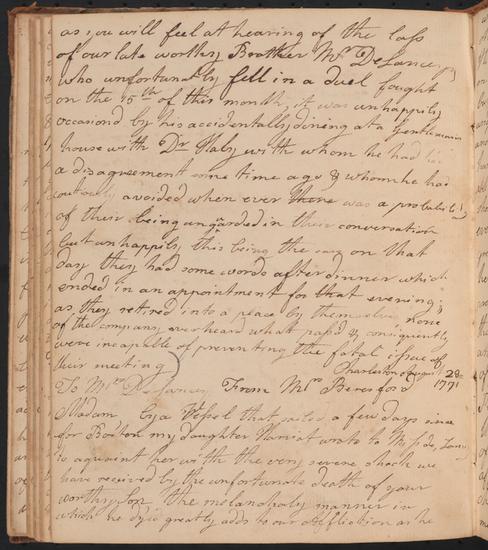 as you will feel at hearing of the loss
of our late worthy Brother Mr DeLancey
who unfortunately fell in a duel fought
on the 15th of this month, it was unhappily
occasiond by his accidentally dining at a Gentlemans
house with Dr Haly with whom he had
a disagreement some time ago & whom he had
cautiously avoided when ever there was a probability
of their being unguarded in their conversation
but unhappily this being the case on that
day they had some words after dinner which
ended in an appointment for that evening;
as they retired into a place by themselves none
of the company overheard what past & consequently
were incapable of preventing the fatal issue of
their meeting
Charleston August 28
1771
To Mrs DeLancey From Mrs Beresford
Madam by a Vessel that sailed a few days since
for Boston my daughter Harriat wrote to Miss de Lancey
to acquaint her with the very severe shock we
have received by the unfortunate death of your
worthy Son the melancholy manner in
which he dyed greatly adds to our affliction as he